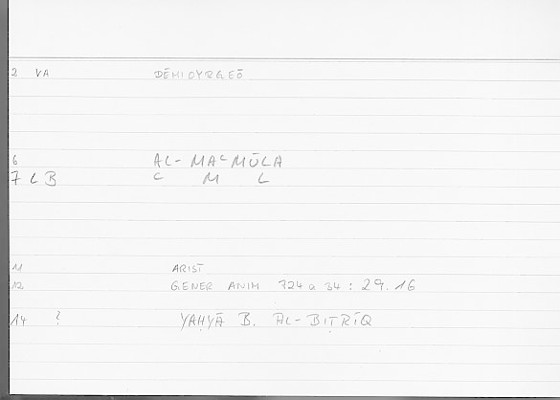 2 VA DĒMIOYRGEŌ
6 AL-MAʿMŪLA
7 LB ʿ M L
11 ARIST
12 GENER ANIM 724 a 34 : 29.16
14 ? YAḤYĀ B. AL-BIṬRĪQ